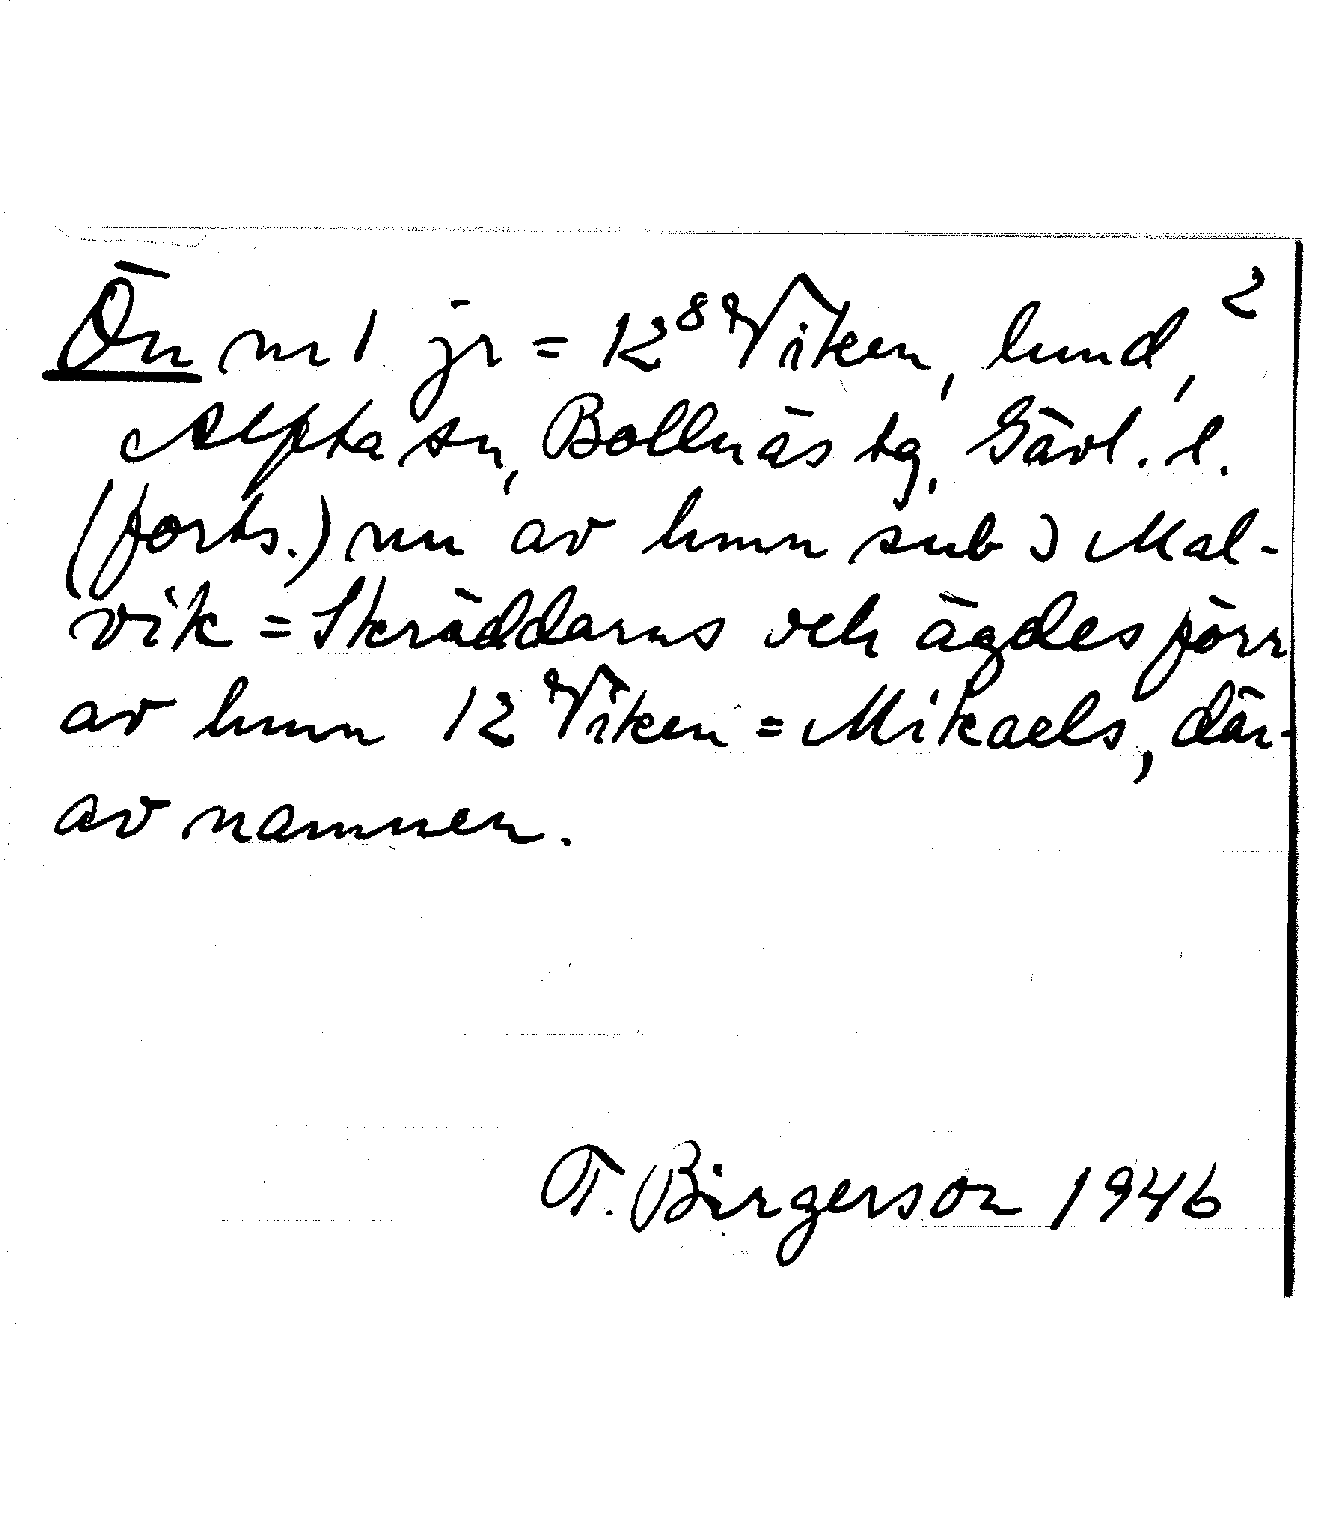 Ön nr 1 jr = 12⁸ Viken, lund, 2
Alfta sn, Bollnäs tg, Gävl. l.
(forts.) nu av hmn sub 3 Mal-
vik = Skräddarns och ägdes förr
av hmn 12 Viken = Mikaels, där-
av namnen.
T. Birgerson 1946